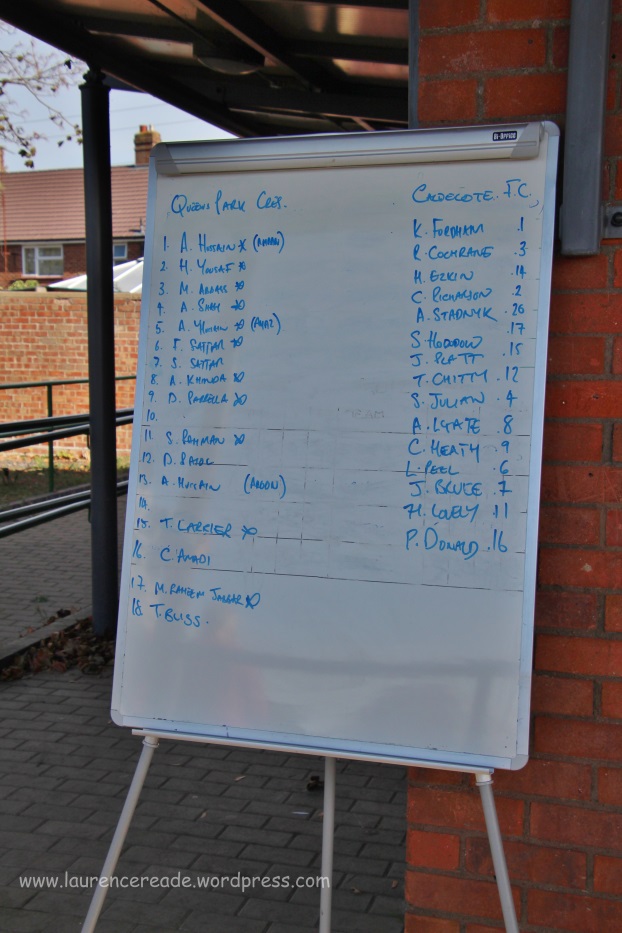 BI-OFFICE
QUEENS PARK CRES.
1. A. HUSSAIN (AMAAN)
2. H. YOUSAF
3. M. ABBASS
4. A. SHAH
5. A. HUSSAIN
6. F. SATTAR
7. S. SATTAR
8. A. KHONDA
9. D. PARRELLA
10.
11. S. REHMAN
12. D.
13. A. HUSSAIN
14.
15. T. CARRIER
16. C. AMADI
17. M. RAHEEM JABBAR
18 T. BLISS.
CALDECOTE F.C.
K. FORDHAM .1
R. COCHRANE .3
H. EZKIN .14
C. RICHARDSON .2
A. STADNYK .20
S HODDOW .17
J. PLATT .15
T. CHITTY .12
S. JULIAN .4
A. LGATE .8
C. HEATY .9
L. PEEL .6
J. BRUCE .7
H. LOVELY .11
P. DONALD .16
www.laurencereade.wordpress.com